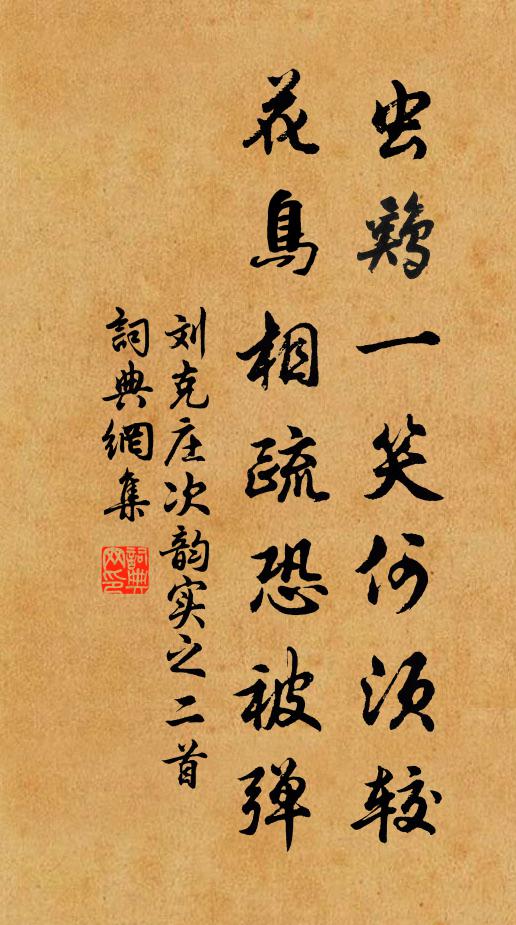 虫鸡一笑何须较
花鸟相疏恐被弹
刘克庄次韵实之二首
詞典網集
詞典网印